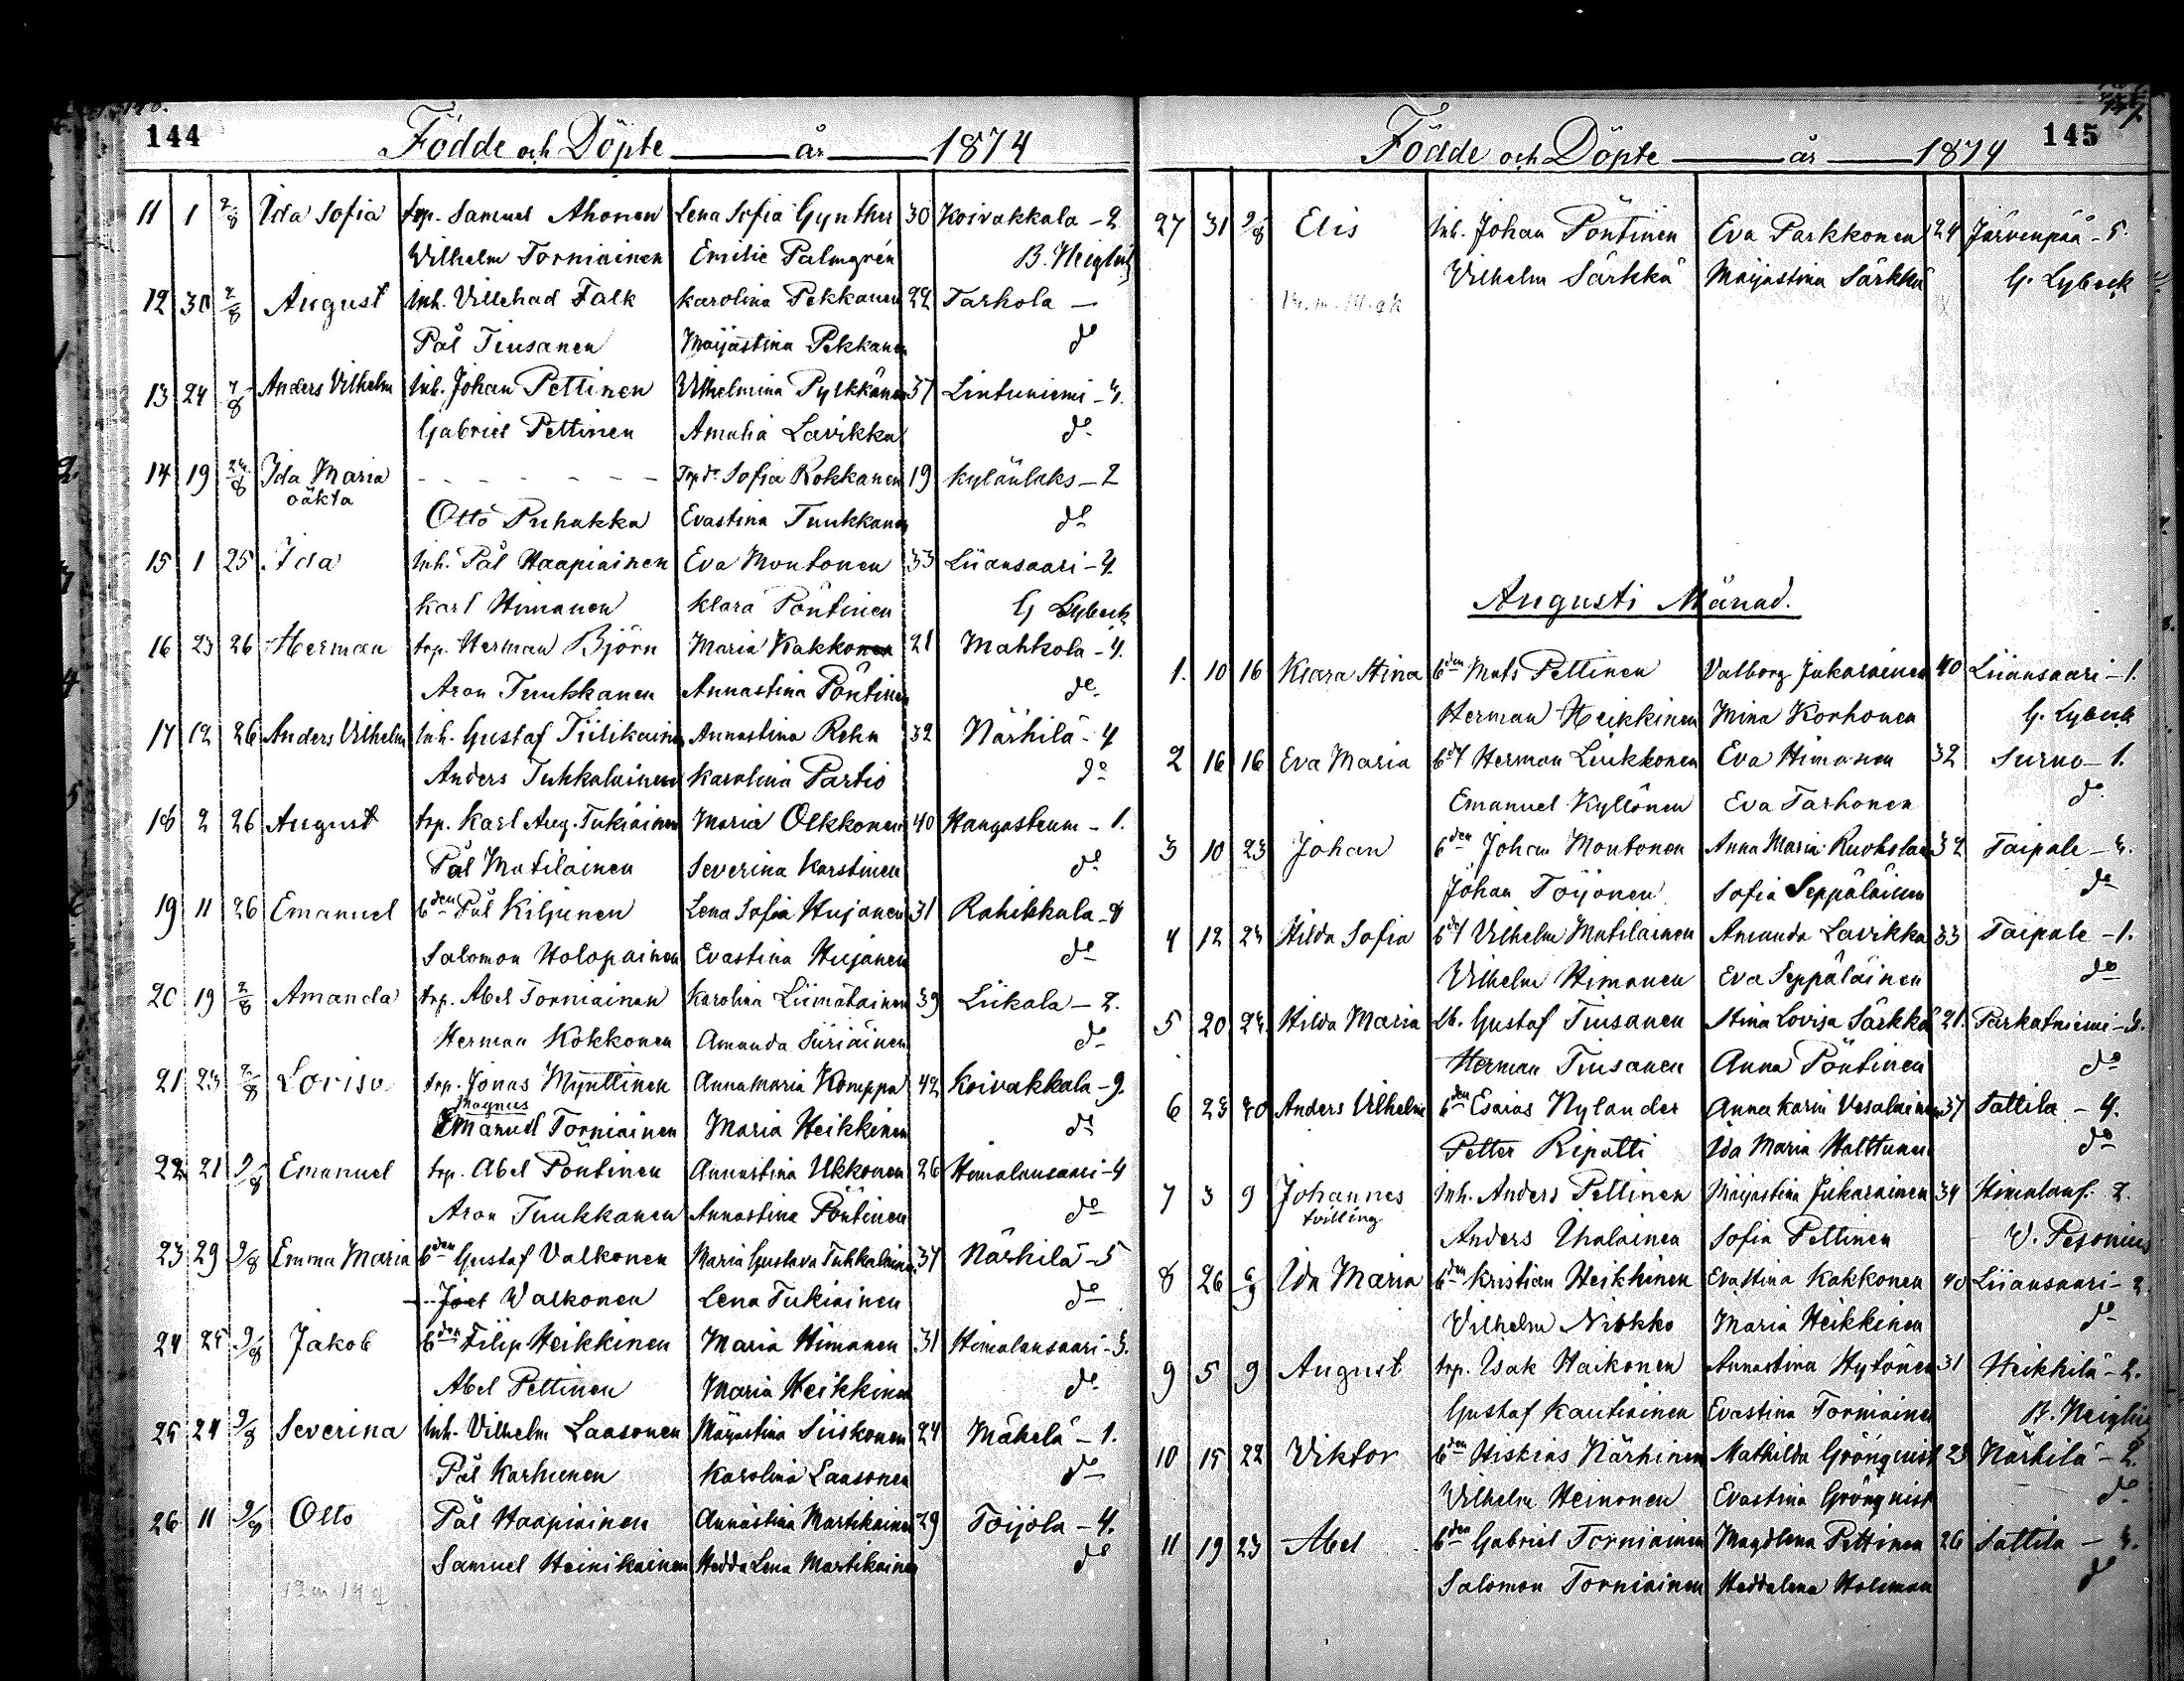 144
Födde och Döpte år 1874
11 1 2/8 Ida Sofia trp. Samuel Ahonen Lena Sofia Gynther 30 Koivakkala - 2
Wilhelm Torniainen Emilie Palmgrén B. Neiglick
12 30 2/8 August Inh. Villehad Falk Karolina Pekkanen 22 Tarkola -
Pål Tiusanen Maijastina Pekkanen do
13 24 7/8 Anders Vilhelm Inh. Johan Pettinen Vilhelmina Pylkkänen 37 Lintuniemi - 4.
Gabriel Pettinen Amalia Lavikka do
14 19 24/8 Ida Maria - - - - - - Trp dr Sofia Kokkanen 19 Kylänlaks - 2
oäkta
Otto Puhakka Evastina Tuukkanen do
15 1 25 Ida Inh. Pål Haapiainen Eva Montonen 33 Liiansaari - 4.
Karl Himanen Klara Pöntinen G Lybeck
16 23 26 Herman trp. Herman Björn Maria Kakkonen 21 Mahkola - 4.
Aron Tuukkanen Annastina Pöntinen do
17 12 26 Anders Vilhelm Inh. Gustaf Tiilikainen Annastina Rehn 32 Närhilä - 4
Anders Tuhkalainen Karolina Partio do
18 2 26 August trp. Karl Aug. Tukiainen Maria Olkkonen 40 Kangasteum - 1.
Pål Matilainen Severina Karstinen do
19 11 26 Emanuel bden Pål Kiljunen Lena Sofia Hujanen 31 Rahikkala - 4
Salomon Holopainen Evastina Hujanen do
20 19 2/8 Amanda trp. Abel Torniainen Karolina Liimatainen 39 Liikala - 2.
Herman Kokkonen Amanda Siiriäinen do
21 23 2/8 Lovisa trp. Jonas Mynttinen Anna Maria Komppa 42 Koivakkala - 9.
Magnus
Emanuel Torniainen Maria Heikkinen do
22 21 9/8 Emanuel trp. Abel Pöntinen Annastina Ukkonen 26 Himalansaari - 4
Aron Tuukkanen Annastina Pöntinen do
23 29 9/8 Emma Maria bden Gustaf Valkonen Maria Gustava Tuhkalainen 37 Närhilä - 5
Joel Walkonen Lena Tukiainen do
24 25 9/8 Jakob bden Filip Heikkinen Maria Himanen 31 Himalansaari - 3.
Abel Pettinen Maria Heikkinen do
25 24 9/8 Severina Inh. Vilhelm Laasonen Maijastina Siiskonen 24 Mähelä - 1.
Pål Karhunen Karolina Laasonen do
26 11 9/8 Otto Pål Haapiainen Annastina Martikainen 29 Toijola - 4.
Samuel Heinikainen Hedda Lena Martikainen do
145
Födde och Döpte år 1874
27 31 2/8 Elis Inh. Johan Pöntinen Eva Parkkonen 24 Järvenpää - 5.
Vilhelm Särkkä Maijastina Särkkä G. Lybeck
Augusti Månad.
1. 10 16 Klara Stina bden Mats Pettinen Valborg Jukarainen 40 Liiansaari - 1.
Herman Heikkinen Mina Korhonen G. Lybeck
2 16 16 Eva Maria bdf Herman Liukkonen Eva Himanen 32 Suruo - 1.
Emanuel Kyllönen Eva Tarhonen do
3 10 23 Johan bden Johan Montonen Anna Maria 32 Taipale - 4.
Johan Toijonen Sofia Seppäläinen do
4 12 23 Hilda Sofia bdf Vilhelm Matilainen Amanda Lavikka 33 Taipale - 1.
Vilhelm Himanen Eva Seppäläinen do
5 20 24. Hilda Maria Lb. Gustaf Tiusanen Stina Lovisa Särkkä 21. Parkatniemi - 4.
Herman Tiusanen Anna Pöntinen do
6 23 30 Anders Vilhelm bden Esaias Nylander Anna Karin Vesalainen 37 Sattila - 4.
Petter Ripatti Ida Maria Halttunen do
7 3 9 Johannes Inh. Anders Pettinen Maijastina Jukarainen 34 Himalans. 2.
tvilling
Anders Ihalainen Sofia Pettinen V. Pesonius
8 26 6/9 Ida Maria bden Kristian Heikkinen Evastina Kakkonen 40 Liiansaari - 2
Vilhelm Nikkho Maria Heikkinen do
9 5 9 August trp. Isak Haikonen Annastina Hytönen 31 Heikkilä - 2.
Gustaf Kautiainen Evastina Torniainen B. Neiglick
10 15 22 Viktor bden Hiskias Närhinen Mathilda Grönqvist 23 Närhilä - 2.
Vilhelm Heinonen Evastina Grönqvist do
11 19 23 Abel bden Gabriel Torniainen Magdlena Pettinen 26 Sattila - 4.
Salomon Torniainen Heddalena Holsman do